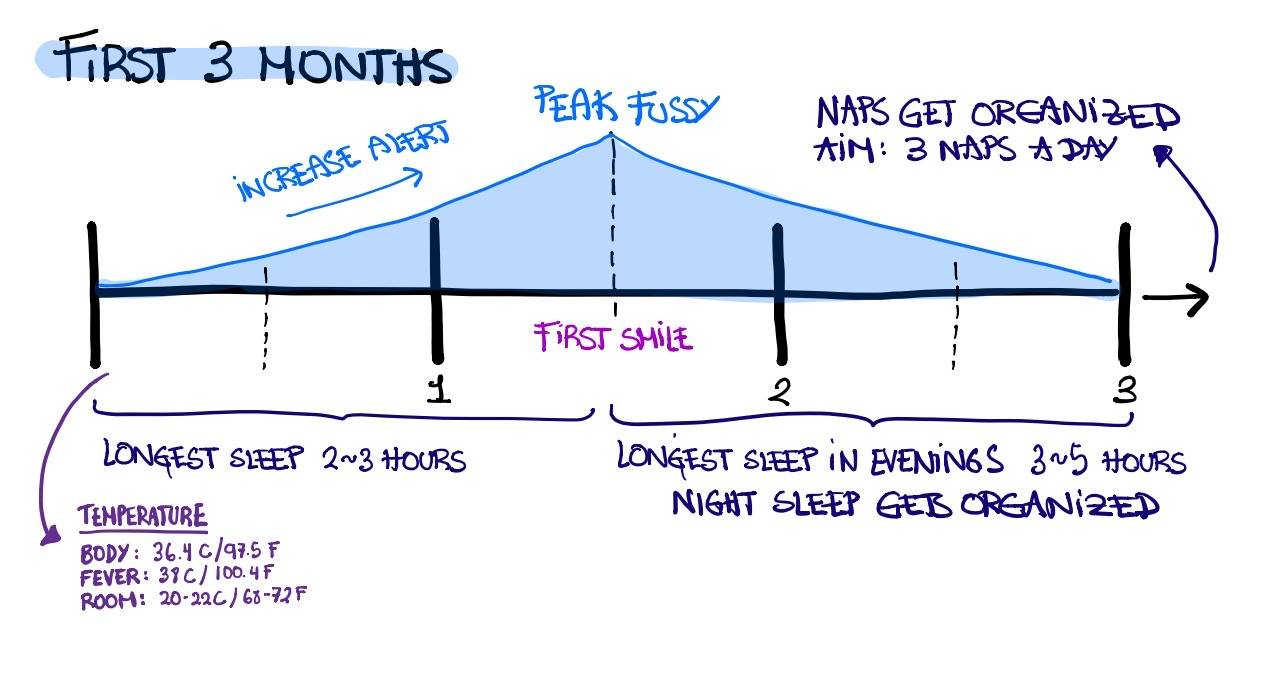 FIRST 3 MONTHS
PEAK FUSSY
INCREASE ALERT
NAPS GET ORGANIZED
AIM: 3 NAPS A DAY
FIRST SMILE
1
2
3
LONGEST SLEEP 2~3 HOURS
LONGEST SLEEP IN EVENINGS 3~5 HOURS
NIGHT SLEEP GETS ORGANIZED
TEMPERATURE
BODY: 36.4 C/97.5 F
FEVER: 38C/100.4 F
ROOM: 20-22C/68-72F